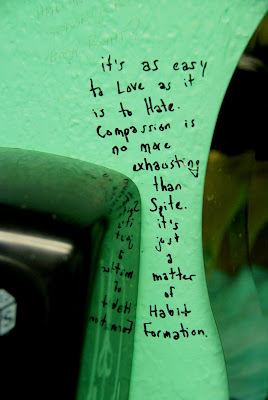 it's as easy
to Love as it
is to Hate.
Compassion is
no more
exhausting
than
Spite.
it's
just
a
matter
of
Habit
Formation.